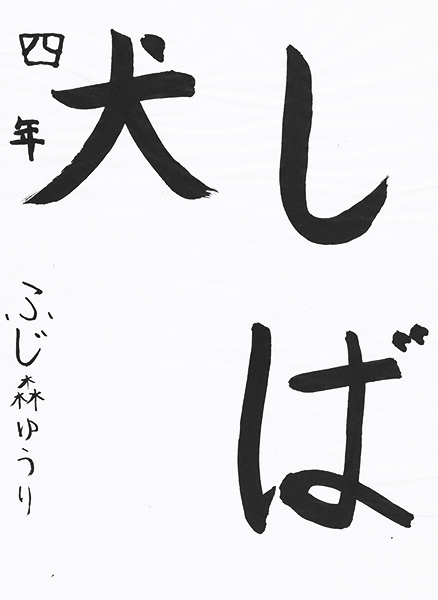 しば
犬
四年
ふじ森ゆうり